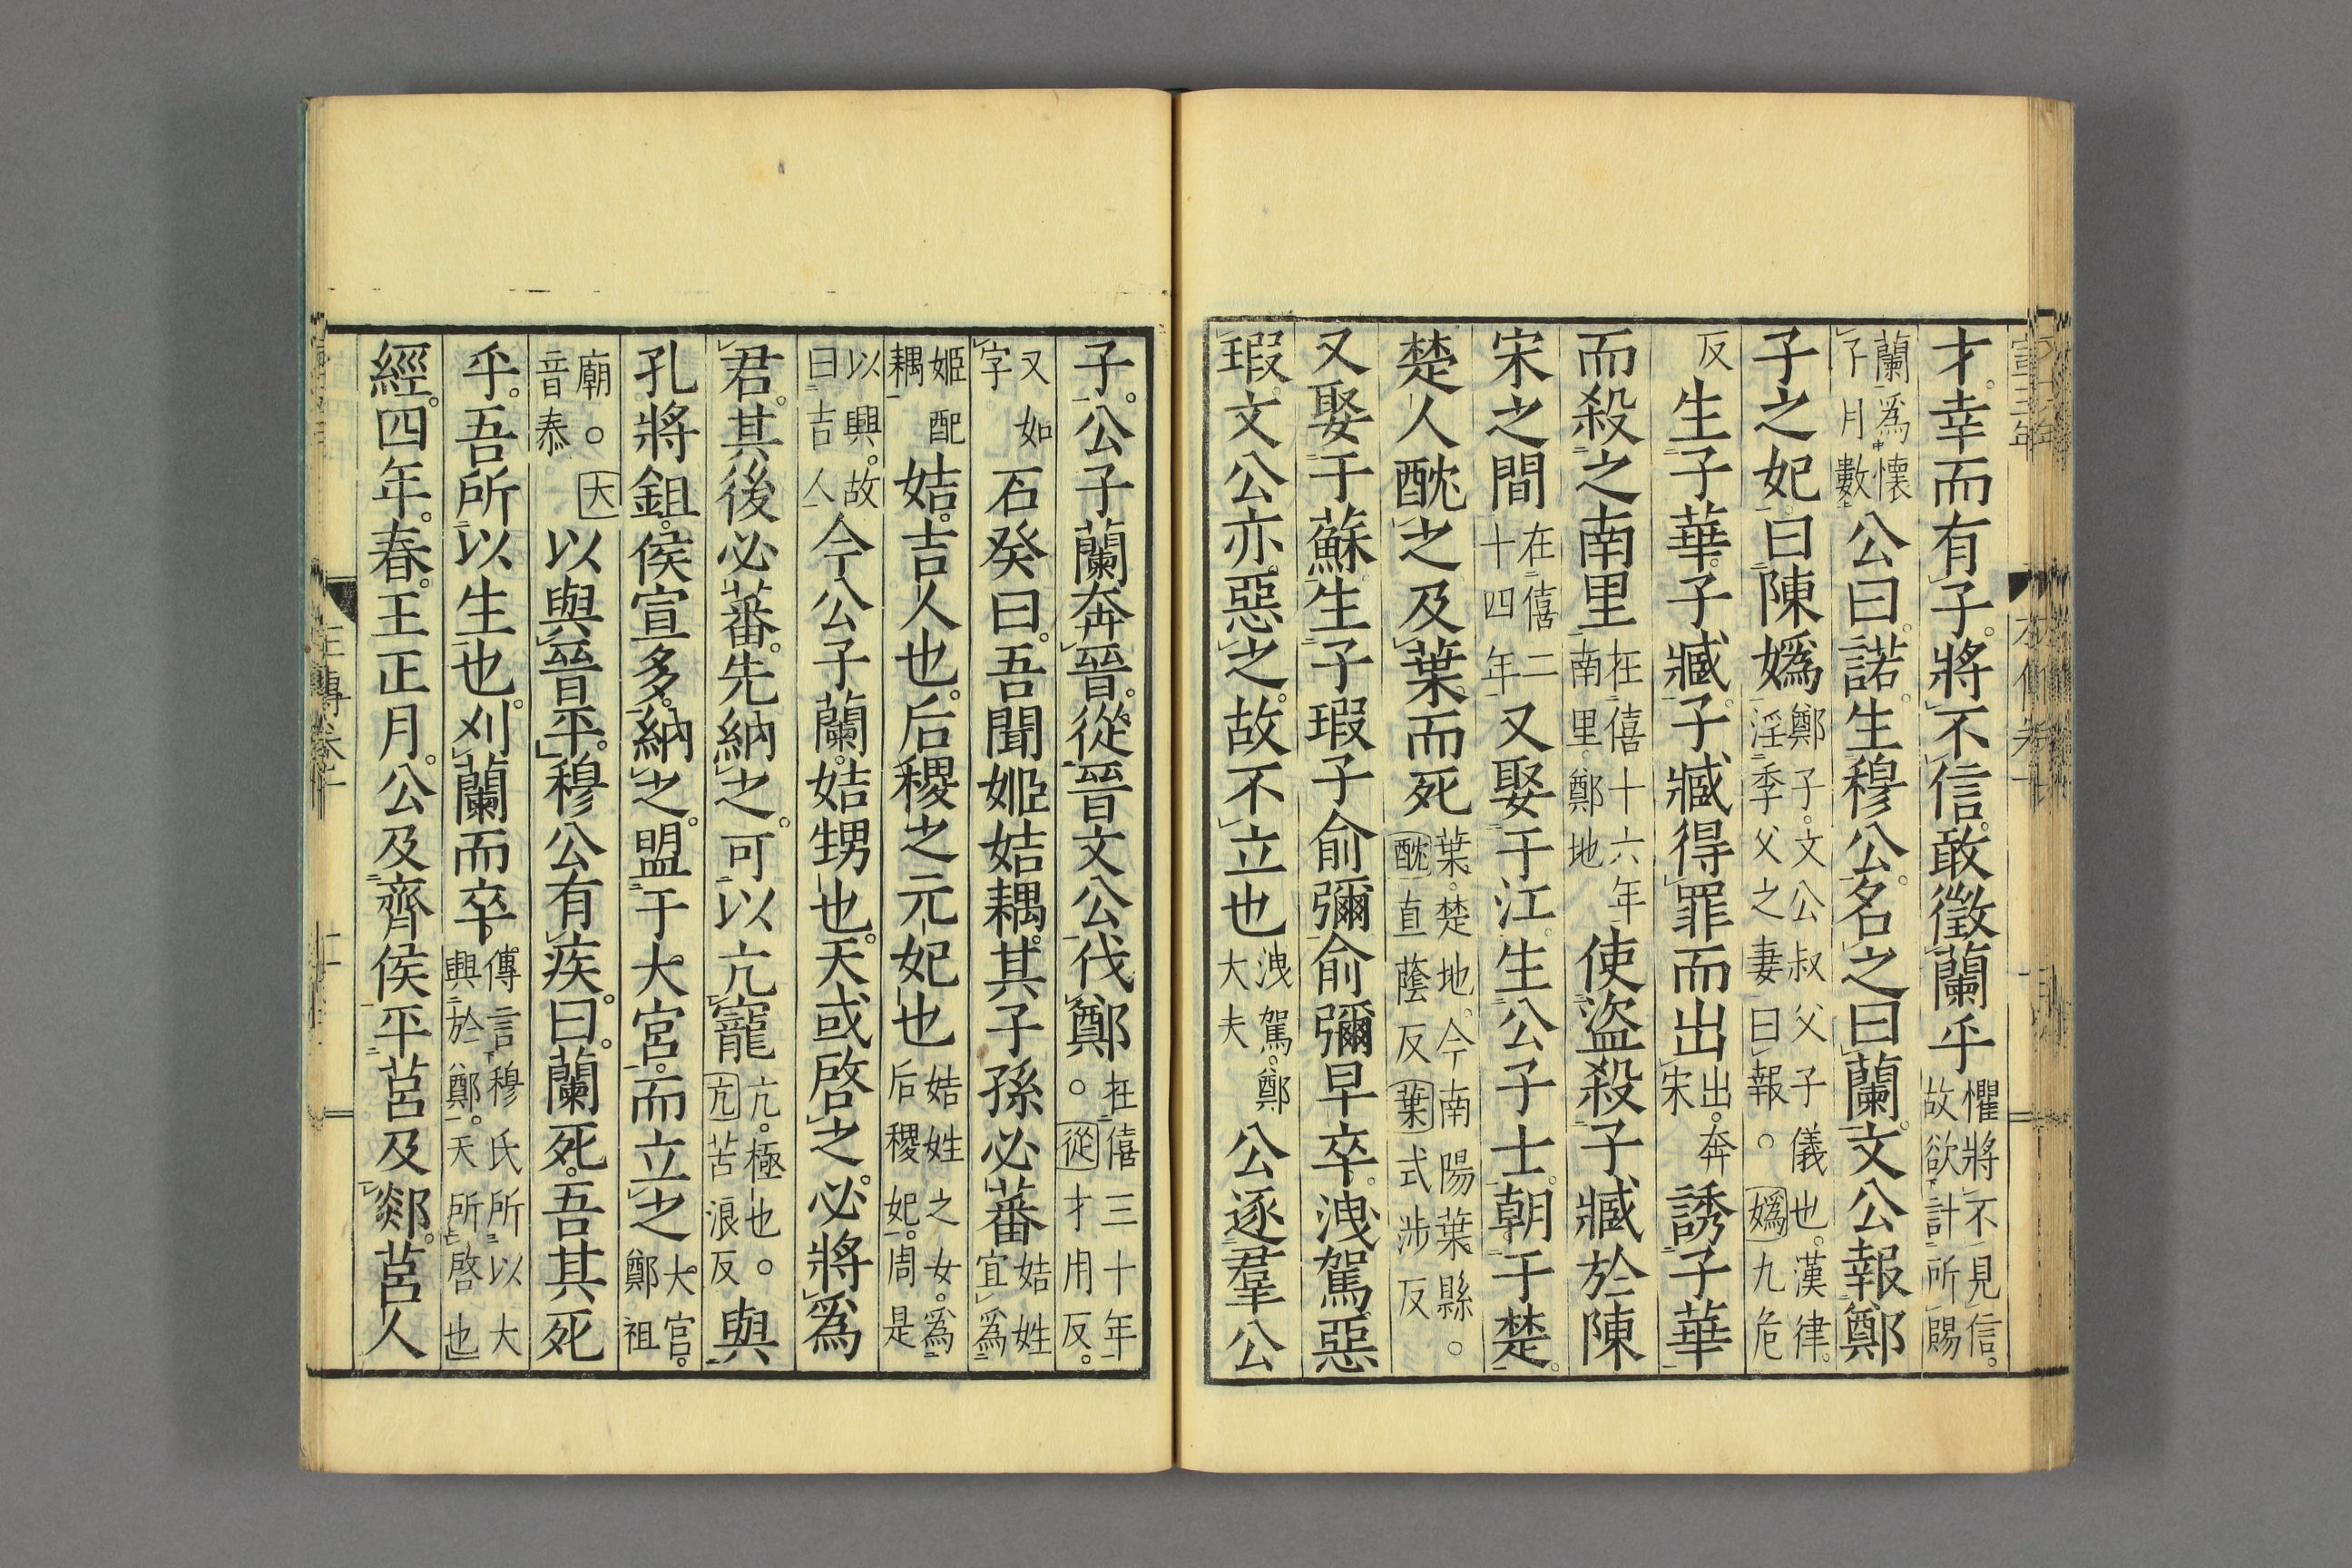 才。幸而有子。將不信。敢徵蘭乎懼將不見信。故欲計所賜
蘭爲懷子月數公曰。諾。生穆公。名之曰蘭。文公報鄭
子之妃。曰陳媯鄭子。文公叔父子儀也。漢律。淫季父之妻曰報。媯九危
反生子華。子臧。子臧得罪而出出。奔宋誘子華
而殺之南里在僖十六年南里。鄭地使盜殺子臧於陳
宋之間在僖二十四年又娶于江。生公子士。朝于楚。
楚人酖之。及葉而死葉。楚地。今南陽葉縣。酖直蔭反葉式涉反
又娶于蘇。生子瑕子俞彌。俞彌早卒。洩駕惡
瑕。文公亦惡之。故不立也洩駕。鄭大夫公逐羣公
子。公子蘭奔晉。從晉文公伐鄭。在僖三十年從才用反。
又如字石癸曰。吾聞姬姞耦。其子孫必蕃姞姓宜爲
姬配耦姞。吉人也。后稷之元妃也姞姓之女。爲后稷妃。周是
以興。故曰吉人今公子蘭。姞甥也。天或啓之。必將爲
君。其後必蕃。先納之。可以亢寵亢。極也。亢苦浪反與
孔將鉏。侯宣多。納之。盟于大宮。而立之大宮。鄭祖
廟。大音泰以與晉平。穆公有疾。曰。蘭死。吾其死
乎。吾所以生也。刈蘭而卒。傳言穆氏所以大興於鄭。天所啓也
經。四年。春。王正月。公及齊侯平莒及郯。莒人